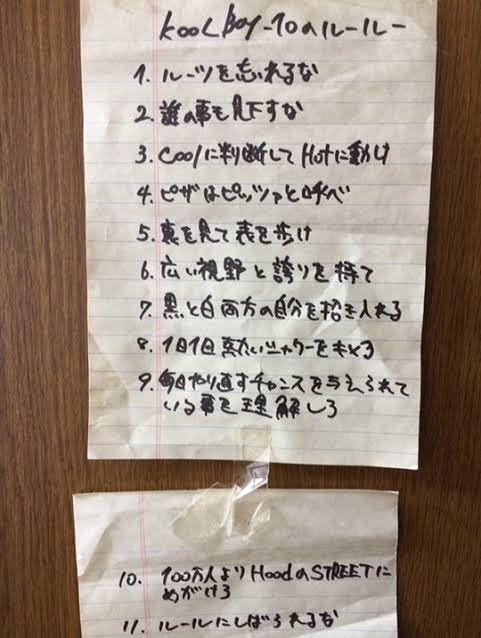 KOOL Boy -10のルール-
1. ルーツを忘れるな
2. 誰の事も見下すな
3. Coolに判断してHotに動け
4. ピザはピッツァと呼べ
5. 裏を見て表を歩け
6. 広い視野と誇りを持て
7. 黒と白両方の自分を招き入れる
8. 1日1回冷たいシャワーをキメろ
9. 毎日やり直すチャンスを与えられて
いる事を理解しろ
10. 100万人よりHoodのSTREETに
めがけろ
11. ルールにしばられるな